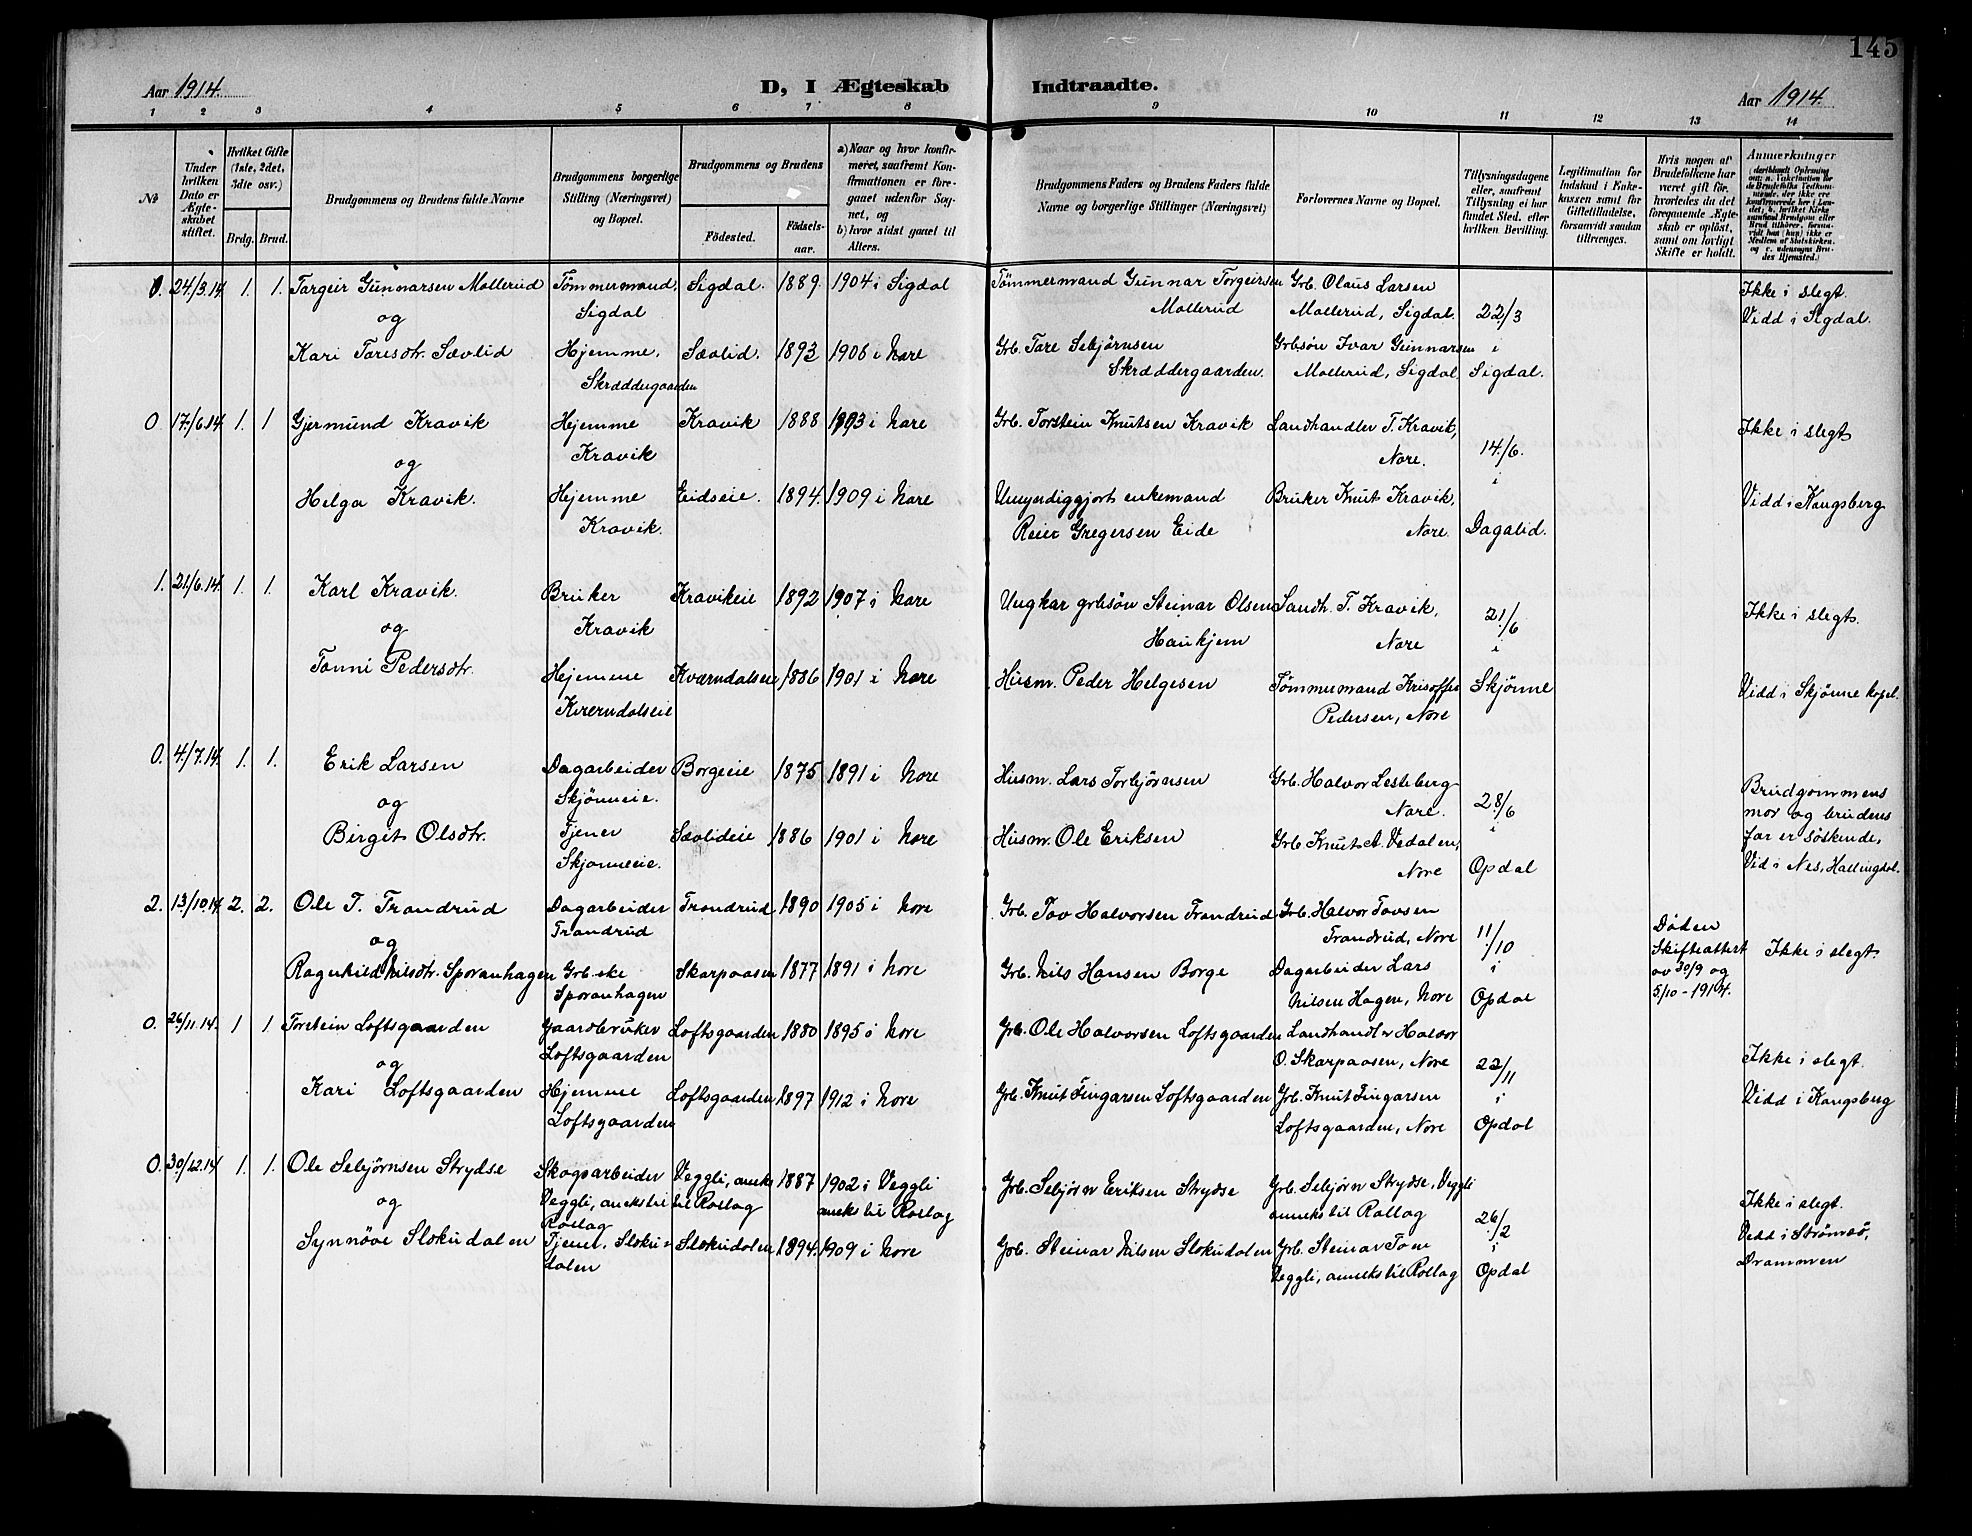 145
Aar 1914.
D, I Ægteskab Indtraadte.
Aar 1914.
1 2 3 4 5 6 7 8 9 10 11 12 13 14
No
Under hvilken Dato er Ægteskabet stiftet.
Hvilket Gifte (1ste, 2det, 3die osv.)
Brdg. Brud.
Brudgommens og Brudens fulde Navne
Brudgommens borgerlige Stilling (Næringsvei) og Bopæl.
Brudgommens og Brudens
Födested. Födselsaar.
a) Naar og hvor konfirmeret, saafremt Konfirmationen er foregaaet udenfor Sognet, og
b) hvor sidst gaaet til Alters.
Brudgommens Faders og Brudens Faders fulde Navne og borgerlige Stillinger (Næringsvei)
Forlovernes Navne og Bopæl.
Tillysningsdagene eller, saafremt Tillysning ei har fundet Sted, efter hvilken Bevilling.
Legitimation for Indskud i Enkekassen samt for Giftetilladelse, forsaavidt saadan tiltrænges.
Hvis nogen af Brudefolkene har været gift för, hvorledes da det foregaaende Ægteskab er oplöst, samt om lovligt Skifte er holdt.
Anmærkninger
0. 24/3.14. 1. 1. Targeir Gunnarsen Mollerud Tömmermand, Sigdal. 1889. 1904 i Sigdal Tömmermand Gunnar Torgeirsen Grb. Olaus Larsen Ikke i slegt.
og Sigdal Mollerud Mollerud, Sigdal. 22/3 Vidd i Sigdal.
Kari Toresdtr. Sævlid Hjemme, Sævlid. 1893 1906 i Nore Grb. Tore Sebjørnsen Grbsön Ivar Gunnarsen i
Skræddergaarden Skræddergaarden. Mollerud, Sigdal. Sigdal.
0 17/6.14. 1. 1 Gjermund Kravik Hjemme Kravik 1888 1903 i Nore Grb. Torstein Knutsen Kravik Landhandler T. Kravik, Ikke i slegt
og Kravik Nore. 14/6. i
Helga Kravik. Hjemme Eidseie. 1894. 1909 i Nore Umyndiggjort enkemand Bruker Knut Kravik, Vidd i Kongsberg
Kravik. Reier Gregersen Eide Nore. Dagalid.
1. 21/6.14. 1. 1. Karl Kravik. Bruker Kravikeie 1892 1907 i Nore Ungkar grbsön Steinar Olsen Landh. T. Kravik, 21/6 Ikke i slegt.
og Kravik Haukjem Nore i
Tonni Pedersdtr. Hjemme Kværndalseie 1886 1901 i Nore Husm. Peder Helgesen Tömmermand Krisoffer Skjönne Vidd i Skjönne kapel.
Kverndalseie Pedersen, Nore
0. 4/7.14. 1. 1. Erik Larsen Dagarbeider Borgeeie 1875 1891 i Nore Husm. Lars Torbjörnsen Grb. Halvor Lesteberg Brudgommens
og Skjönneeie. Nore. 28/6 mor og brudens
Birgit Olsdtr. Tjener Sævlideie 1886 1901 i Nore Husm. Ole Eriksen Grb. Knut A. Vedalen, i far er söskende,
Skjönneeie. Nore Opdal Vid i Nes, Hallingdal.
2. 13/10.14 2. 2. Ole T. Trandrud Dagarbeider Trandrud 1890 1905 i Nore Grb. Tov Halvorsen Trandrud Grb. Halvor Tovsen 11/10 Döden
og Trandrud Trandrud, Nore Skifteattest Ikke i slegt
Ragnhild Nilsdtr. Sporanhagen Grb.ske Skarpaasen 1877 1891 i Nore Grb. Nils Hansen Borge Dagarbeider Lars i av 30/9 og
Sporanhagen Nilsen Hagen, Nore Opdal 5/10 - 1914.
0. 26/11.14. 1 1 Torstein Loftsgaarden Gaardbruker Loftsgaarden 1880 1895 i Nore Grb. Ole Halvorsen Loftsgaarden Landhandler Halvor
og Loftsgaarden O. Skarpaasen, Nore 22/11 Ikke i slegt.
Kari Loftsgaarden Hjemme Loftsgaarden 1897 1912 i Nore Grb. Knut Fingarsen Loftsgaarden Grb. Knut Fingarsen i Vidd i Kongsberg
Loftsgaarden Loftsgaarden, Nore Opdal
0. 30/12.14 1. 1. Ole Sebjörnsen Strydse Skogsarbeider Veggli, aneks 1887 1902 i Veggli Grb. Sebjörn Eriksen Strydse Grb. Sebjörn Strydse, Veggli
og Veggli, aneks til til Rollag aneks til Rollag anneks til Rollag 26/2 Ikke i slegt.
Rollag
Synnöve Slokudalen Tjener, Slokudalen Slokudalen 1894. 1909 i Nore Grb. Steinar Nilsen Slokudalen Grb. Steinar Toen i Vidd i Strömsö,
Veggli, anneks til Rollag Opdal Drammen